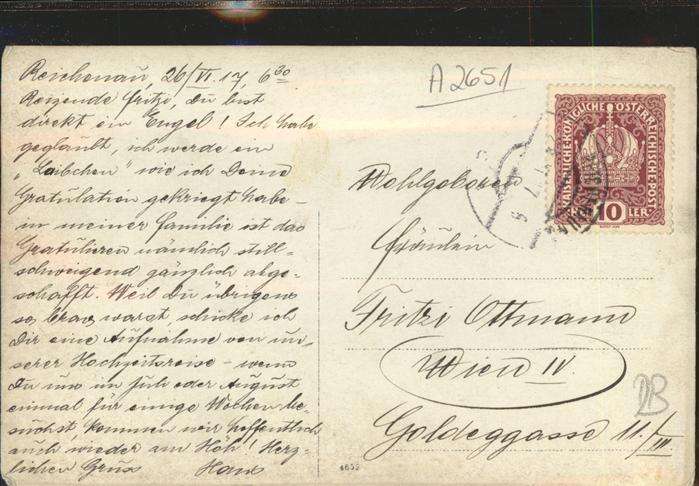 Reichenau, 26/VI. 17, 6 30
Reizende Fritzi, Du bist
direkt ein Engel! Ich habe
geglaubt, ich werde ein
„Laibchen" wie ich Deine
Gratulation gekriegt habe –
in meiner Familie ist das
Gratulieren nämlich still-
schweigend gänzlich abge-
schafft. Weil Du übrigens
so brav warst schicke ich
Dir eine Aufnahme von un-
serer Hochzeitsreise – wenn
Du uns im Juli oder August
einmal für einige Wochen be-
suchst, kommen wir hoffentlich
auch wieder am Höh! Herz-
lichen Gruss Hans
A2651
KAISERLICHE KÖNIGLICHE ÖSTERREICHISCHE POST
10 HELLER
Wohlgeboren
Fräulein
Fritzi Ottmann
Wien IV
Goldeggasse 11./III
2B
4652